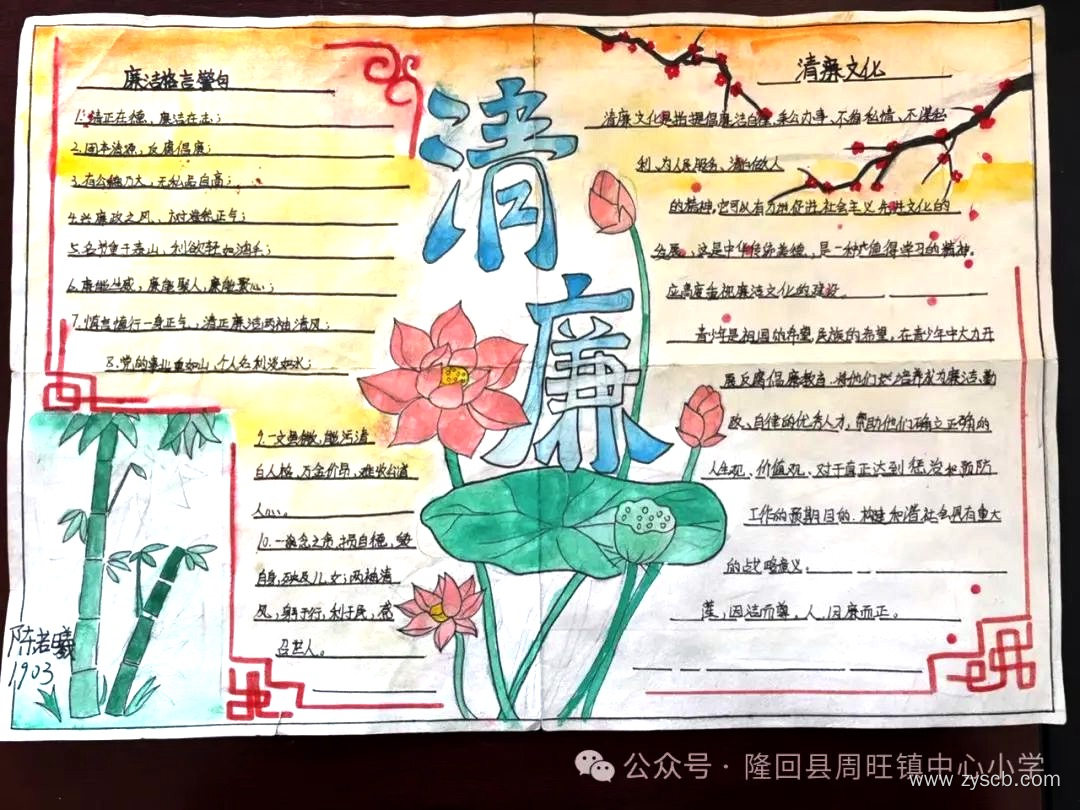 廉洁格言警句
1.清正在德、廉洁在志；
2.固本清源，反腐倡廉；
3.有公德乃大，无私品自高；
4.兴廉政之风、树浩然正气；
5.名节重于泰山，利欲轻如鸿毛；
6.廉能生威，廉能聚人，廉能聚心；
7.慎言慎行一身正气，清正廉洁两袖清风；
8.党的事业重如山，个人名利淡如水；
9.一文虽微，能污清
白人格，万金价昂，难
人心。
10.一贪念之
自身，殃及儿女；两袖清
风，利于民，
召世人。
陈若曦
1903
清廉
清廉文化
清廉文化是指提倡廉洁自律，秉公办事，不徇私情，不谋私
利，为人民服务、清白做人
的精神，它可以有力地促进社会主义先进文化的
发展，这是中华传统美德，是一种值得学习的精神，
应高度重视廉洁文化的建设。
青少年是祖国的希望，民族的希望，在青少年中大力开
展反腐倡廉教育，将他们培养成为廉洁、勤
政、自律的优秀人才，帮助他们确立正确的
人生观、价值观、对于真正达到惩治和预防
工作的预期目的、构建和谐社会具有重大
的战略意义；
莲，因洁而尊，人，因廉而正。
公众号·隆回县周旺镇中心小学
www.zyscb.com